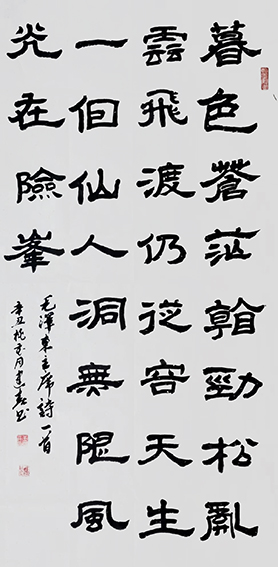 暮色蒼茫看勁松亂
雲飛渡仍從容天生
一個仙人洞無限風
光在險峯
毛澤東主席詩一首
辛丑月建書